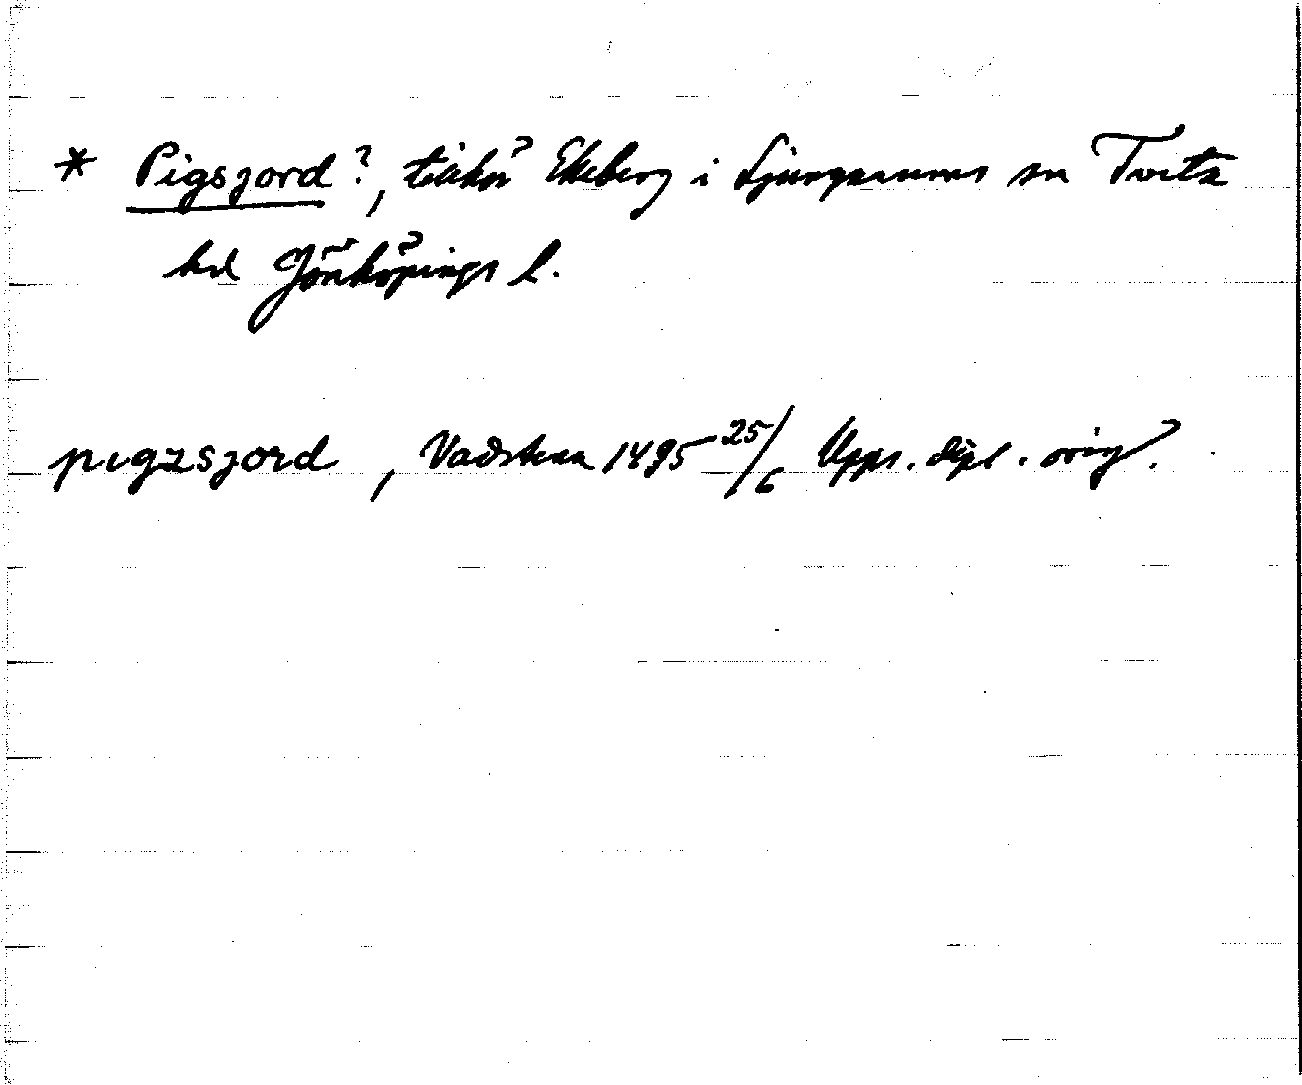 * Pigsjord?, tillhör Ekeberg i Ljungarums sn Tveta
hd Jönköpings l.
pigzsjord, Vadstena 1495 25/6 Upps. dipl. orig.